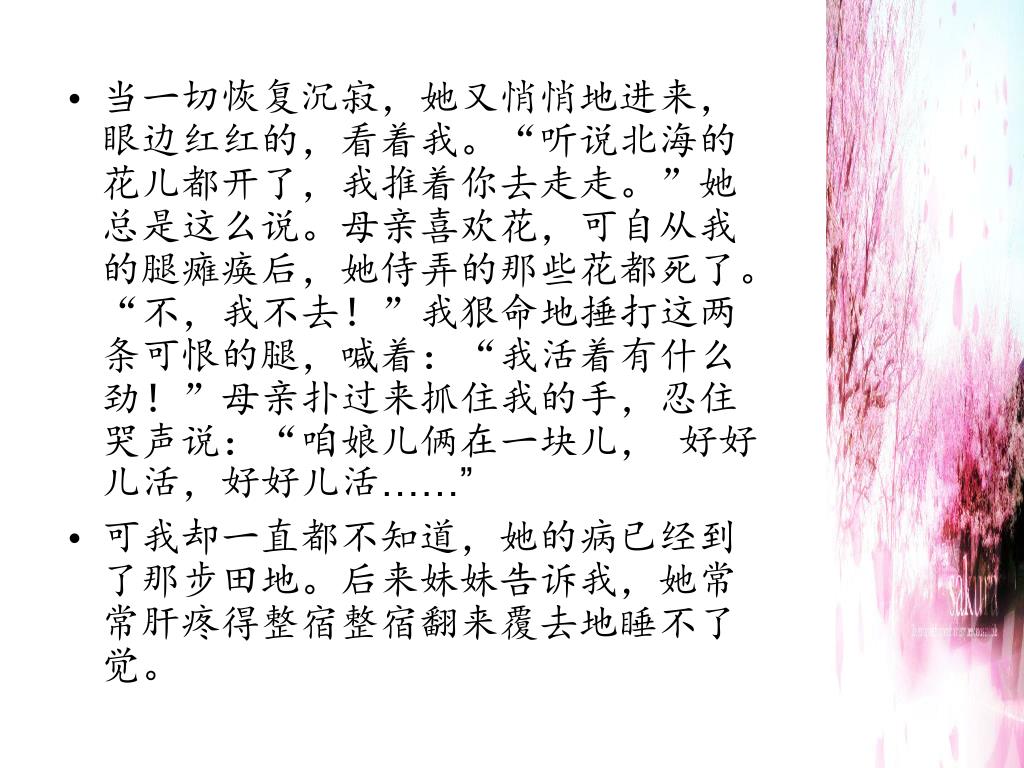 • 当一切恢复沉寂，她又悄悄地进来，
眼边红红的，看着我。“听说北海的
花儿都开了，我推着你去走走。”她
总是这么说。母亲喜欢花，可自从我
的腿瘫痪后，她侍弄的那些花都死了。
“不，我不去！”我狠命地捶打这两
条可恨的腿，喊着：“我活着有什么
劲！”母亲扑过来抓住我的手，忍住
哭声说：“咱娘儿俩在一块儿， 好好
儿活，好好儿活……”
• 可我却一直都不知道，她的病已经到
了那步田地。后来妹妹告诉我，她常
常肝疼得整宿整宿翻来覆去地睡不了
觉。
sakura